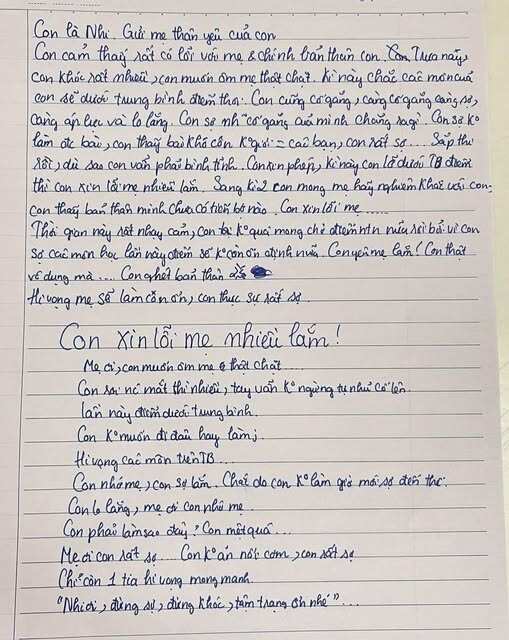 Con là Nhi. Gửi mẹ thân yêu của con
Con cảm thấy rất có lỗi với mẹ & chính bản thân con. Trưa nay,
con khóc rất nhiều, con muốn ôm mẹ thật chặt. Kì này chắc các môn của
con sẽ dưới trung bình điểm thôi. Con cũng cố gắng, càng cố gắng càng sợ,
càng áp lực và lo lắng. Con sợ những cố gắng của mình chẳng ra gì. Con sợ K°
làm đc bài, con thấy bài khó còn K° giỏi = các bạn, con rất sợ.... Sắp thi
rồi, dù sao con vẫn phải bình tĩnh. Con xin phép, kì này con lỡ dưới TB điểm
thì con xin lỗi mẹ nhiều lắm. Sang kì 2 con mong mẹ hãy nghiêm khắc với con,
con thấy bản thân mình chưa có tiến bộ nào. Con xin lỗi mẹ.....
Thời gian này rất nhạy cảm, con K° quá mong chờ điểm nữa rồi bởi vì con
sợ các môn học lần này điểm sẽ K° còn ổn định nữa. Con yêu mẹ lắm! Con thật
vô dụng mà.... Con ghét bản thân
Hi vọng mẹ sẽ làm còn ơn, con thực sự rất sợ.
Con xin lỗi mẹ nhiều lắm!
Mẹ ơi, con muốn ôm mẹ thật chặt....
Con rơi nc mắt thì nhiều, tay vẫn K° ngừng tự nhủ cố lên.
lần này điểm dưới trung bình.
Con K° muốn đi đâu hay làm j
Hi vọng các môn trên TB...
Con nhớ mẹ, con sợ lắm. Chắc do con K° làm giờ mới sợ đến thế.
Con lo lắng, mẹ ơi con nhớ mẹ.
Con phải làm sao đây? Con mệt quá...
Mẹ ơi con rất sợ... Con K° ăn nổi cơm, con rất sợ
Chỉ còn 1 tia hi vọng mong manh.
"Nhi ơi, đừng sợ, đừng khóc, tâm trạng ổn nhé"...